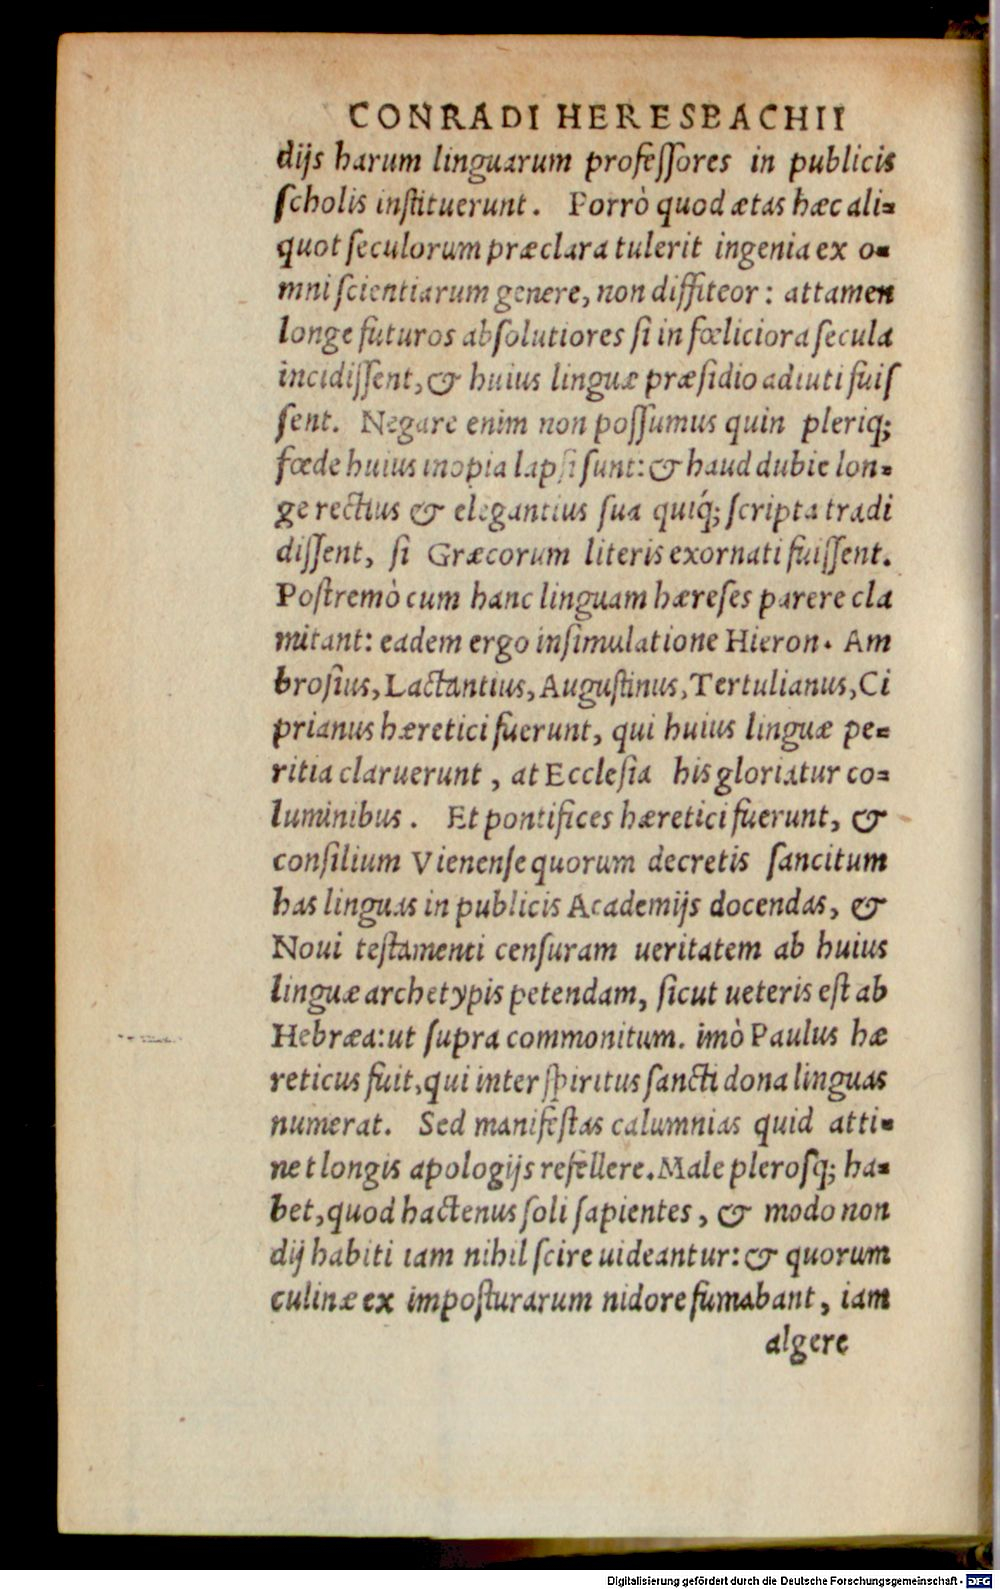 CONRADI HERESBACHII
dijs harum linguarum professores in publicis
scholis instituerunt. Porrò quod ætas hæc ali=
quot seculorum præclara tulerit ingenia ex o=
mni scientiarum genere, non diffiteor: attamen
longe futuros absolutiores si in fœliciora secula
incidissent, & huius linguæ præsidio adiuti fuis
sent. Negare enim non possumus quin pleriq;
fœde huius inopia lapsi sunt: & haud dubie lon=
ge rectius & elegantius sua quiq́; scripta tradi
dissent, si Græcorum literis exornati fuissent.
Postremò cum hanc linguam hæreses parere cla
mitant: eadem ergo insimulatione Hieron. Am
brosius, Lactantius, Augustinus, Tertulianus, Ci
prianus hæretici fuerunt, qui huius linguæ pe=
ritia claruerunt, at Ecclesia his gloriatur co=
luminibus. Et pontifices hæretici fuerunt, &
consilium Vienense quorum decretis sancitum
has linguas in publicis Academijs docendas, &
Noui testamenti censuram ueritatem ab huius
linguæ archetypis petendam, sicut ueteris est ab
Hebræa: ut supra commonitum. imò Paulus hæ
reticus fuit, qui inter spiritus sancti dona linguas
numerat. Sed manifestas calumnias quid atti=
net longis apologijs refellere. Male plerosq; ha=
bet, quod hactenus soli sapientes, & modo non
dij habiti iam nihil scire uideantur: & quorum
culinæ ex imposturarum nidore fumabant, iam
algere
Digitalisierung gefördert durch die Deutsche Forschungsgemeinschaft - DFG